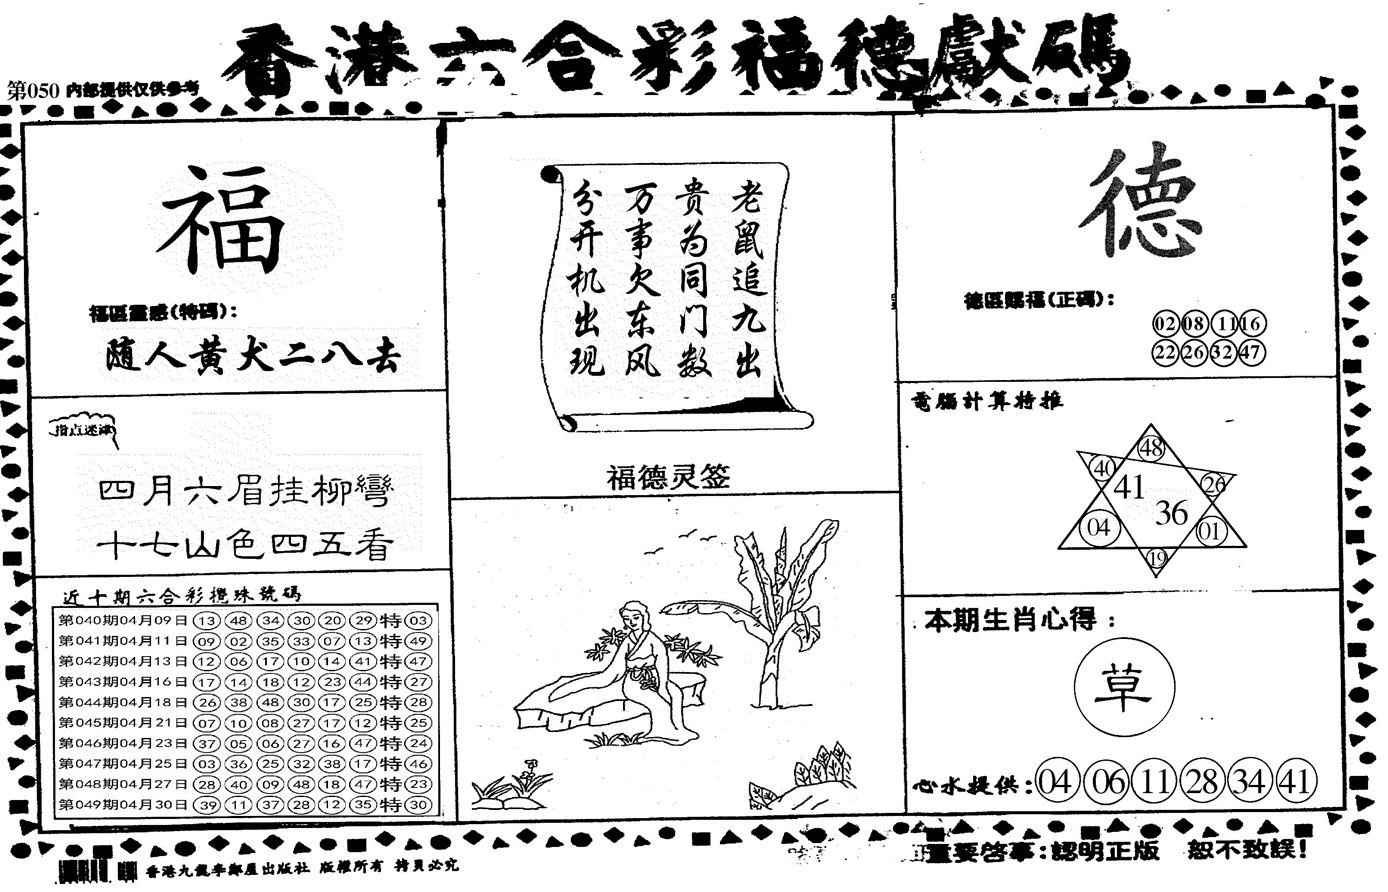 香港六合彩福德獻碼
第050 内部提供仅供参考
福
福區靈感(特碼):
随人黄犬二八去
指点迷津
四月六眉挂柳彎
十七山色四五看
近十期六合彩攪珠號碼
第040期04月09日 13 48 34 30 20 29 特 03
第041期04月11日 09 02 35 33 07 13 特 49
第042期04月13日 12 06 17 10 14 41 特 47
第043期04月16日 17 14 18 12 23 44 特 27
第044期04月18日 26 38 48 30 17 25 特 28
第045期04月21日 07 10 08 27 17 12 特 25
第046期04月23日 37 05 06 27 16 47 特 24
第047期04月25日 03 36 25 32 38 17 特 46
第048期04月27日 28 40 09 48 18 47 特 23
第049期04月30日 39 11 37 28 12 35 特 30
老鼠追九出
贵为同门数
万事欠东风
分开机出现
福德灵签
德
德區賜福(正碼):
02 08 11 16
22 26 32 47
電腦計算特推
48
40 26
41
36
04 01
19
本期生肖心得:
草
心水提供: 04 06 11 28 34 41
香港九龍李鄭屋出版社 版權所有 拷貝必究
重要啓事:認明正版 恕不致誤!